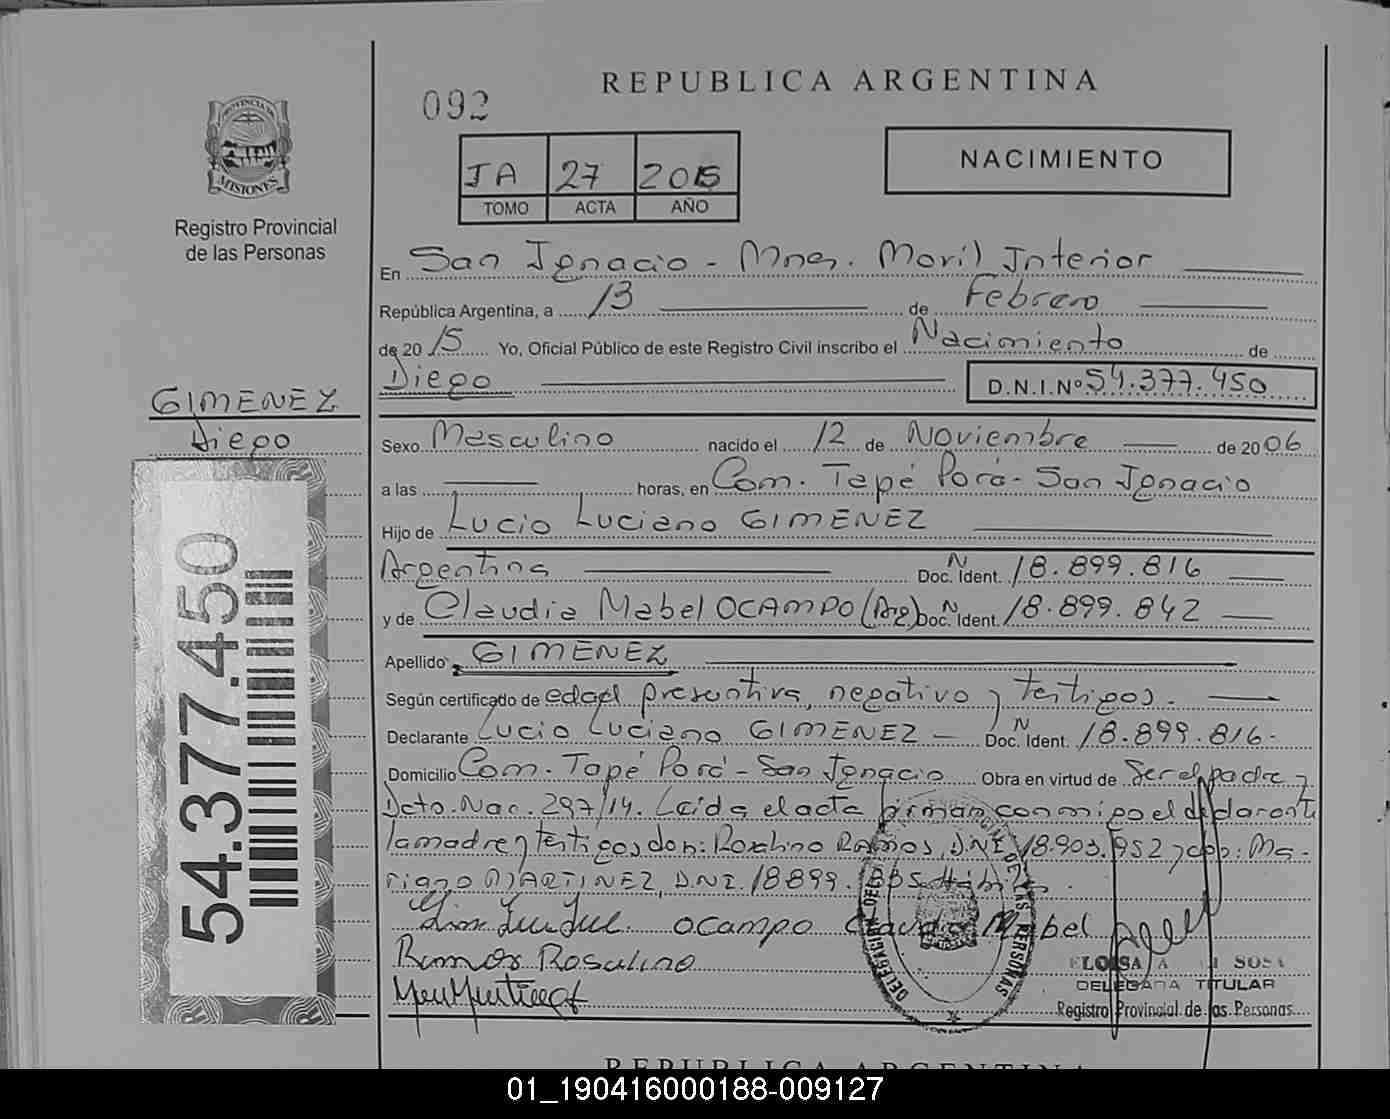 REPUBLICA ARGENTINA
092
PROVINCIA DE
MISIONES
Registro Provincial
de las Personas
JA 27 2015
TOMO ACTA AÑO
NACIMIENTO
En San Ignacio - Mnes. Movil Interior
República Argentina, a 13 de Febrero
de 2015 Yo, Oficial Público de este Registro Civil inscribo el Nacimiento de
Diego D.N.I.Nº 54.377.450
GIMENEZ
Diego
54.377.450
Sexo Masculino nacido el 12 de Noviembre de 2006
a las horas, en Com. Tapé Porá - San Ignacio
Hijo de Lucio Luciano GIMENEZ
Argentina Doc. N Ident. 18.899.816
y de Claudia Mabel OCAMPO (Arg) Doc. N Ident. 18.899.842
Apellido GIMENEZ
Según certificado de edad presuntiva, negativo y testigos.-
Declarante Lucio Luciano GIMENEZ - Doc. N Ident. 18.899.816-
Domicilio Com. Tapé Porá - San Ignacio Obra en virtud de Ser el padre y
Dcto. Nac. 297/14. Leida el acta firman conmigo el declarante
la madre y testigos don: Rosalino RAMOS, DNI 18.903.952 y don: Ma-
riano MARTINEZ, DNI. 18.899. Hábiles.
Ocampo Claudia Mabel
Ramos Rosalino
ELOISA A SOSA
DELEGADA TITULAR
Registro Provincial de las Personas
REPUBLICA ARGENTINA
01_190416000188-009127